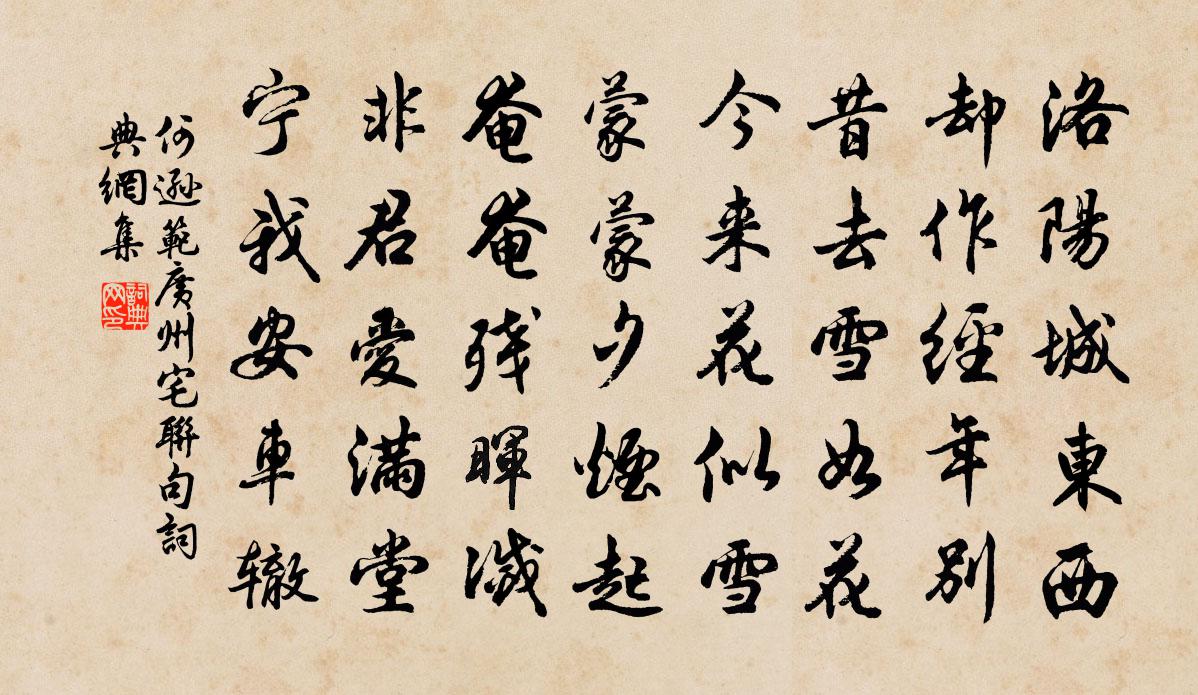 洛陽城東西
却作經年別
昔去雪如花
今来花似雪
蒙蒙夕煙起
奄奄残暉滅
非君愛滿堂
宁我安車辙
何遜範廣州宅聯句詞
典網集
詞典
网印